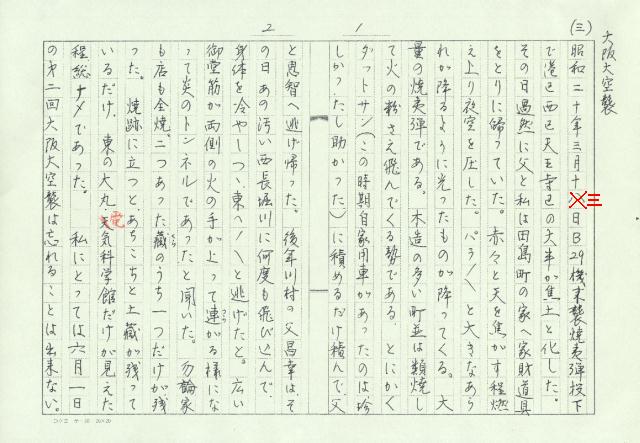 大阪大空襲
(三)
1
2
昭和二十年三月十三日B29機来襲焼夷弾投下
で港区西区天王寺区の大半が焦土と化した。
その日偶然に父と私は田島町の家へ家財道具
をとりに帰っていた。赤々と天を焦がす程燃
え上り夜空を圧した。バラ〱と大きなあら
れが降るように光ったものが降ってくる。大
量の焼夷弾である。木造の多い町並は類焼し
て火の粉さえ飛んでくる勢である。とにかく
ダットサン(この時期自家用車があったのは珍
しかったし助かった)に積めるだけ積んで、父
と恩智へ逃げ帰った。後年川村の父昌幸は、そ
の日あの汚い西長堀川に何度も飛び込んで、
身体を冷やしつゝ東へ〱と逃げたと。広い
御堂筋が両側の火の手が上って連がる様にな
って炎のトンネルであったと聞いた。勿論家
も店も全焼。二つあった藏のうち一つだけが残
った。 焼跡に立つとあちこちと土藏が残って
いるだけ、東の大丸電気科学館だけが見えた
程総ナメであった。 私にとっては六月一日
の第二回大阪大空襲は忘れることは出来ない。
コクヨ ケ-10 20×20